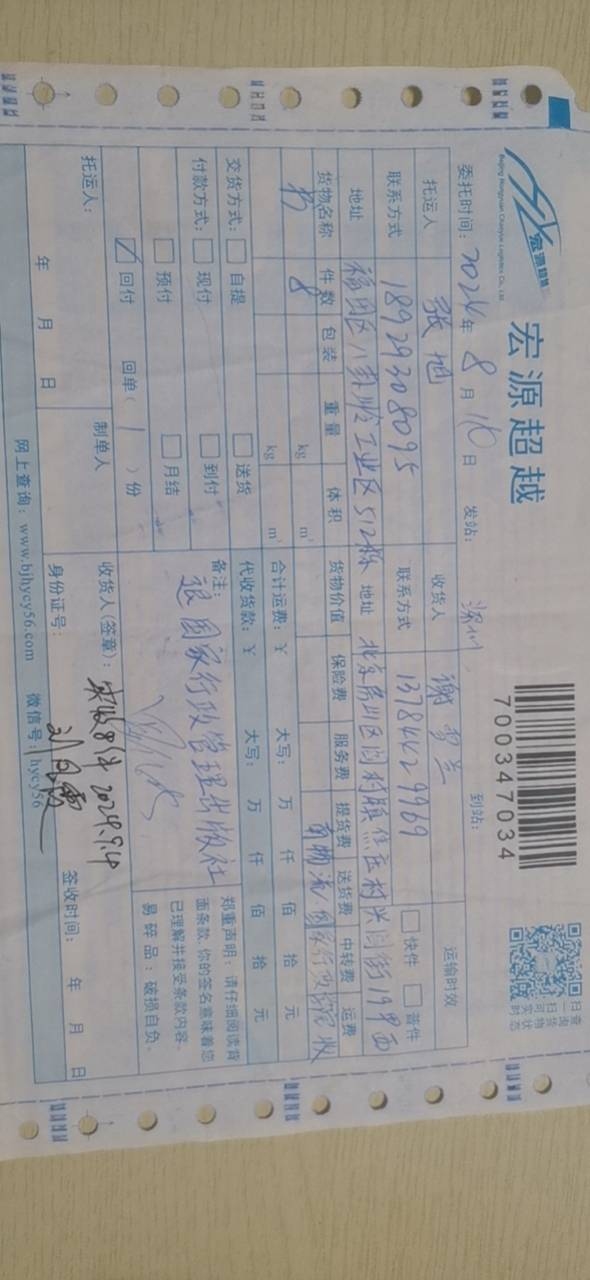 宏源超越
Beijing Hongyuan Chaoyue Logistics Co., Ltd.
宏源超越
700347034
扫一扫可实时
查询货物状态
委托时间：2024年 8月 10日 发站：深圳 到站：
托运人 张地 收货人 谢 兰 运输时效
联系方式 18929308095 联系方式 13784429969 快件 普件
地址 福田区八卦岭工业区512栋 地址 北京房山区闫村镇焦庄村兴闫街19号西
货物名称 件数 包装 重量 体积 货物价值 保险费 服务费 提货费 送货费 中转费 运费
书 8 kg m³
kg m³ 合计运费：¥ 大写： 万 仟 佰 拾 元
交货方式： 自提 送货 代收货款：¥ 大写： 万 仟 佰 拾 元
付款方式： 现付 到付 备注：
退国家行政管理出版社
预付 月结
回付 回单（ 1 ）份
郑重声明：请仔细阅读背
面条款，你的签名意味着您
已理解并接受条款内容。
易碎品：破损自负。
托运人： 制单人 收货人(签章)：实收8件 2024.9.4
年 月 日 身份证号： 签收时间： 年 月 日
网上查询：www.bjhycy56.com 微信号：hycy56